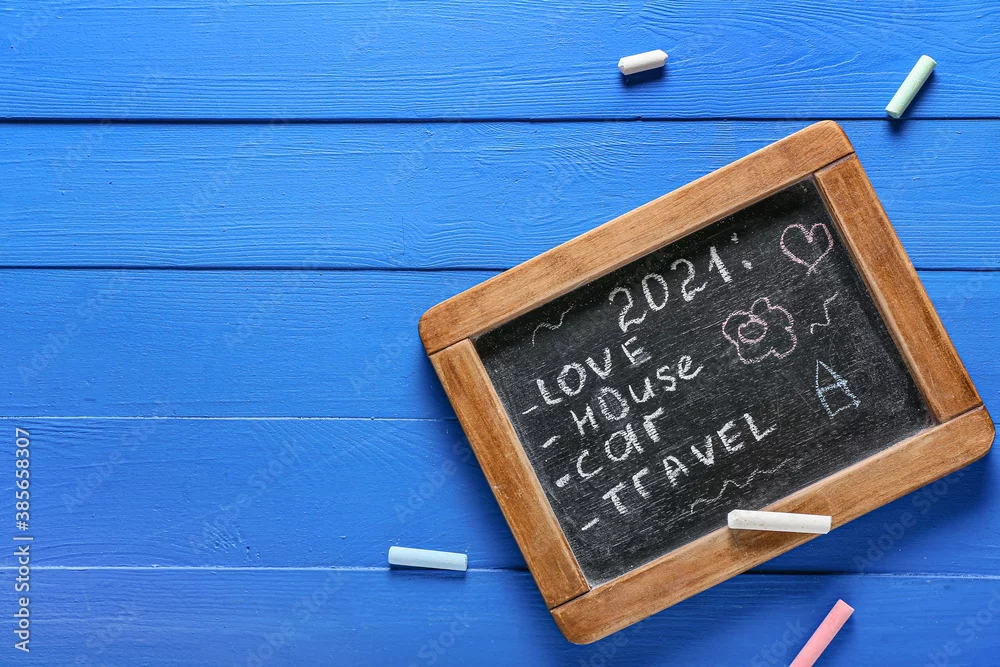 2021:
- LOVE
- House
- Car
- TRAVEL
Adobe Stock | #385658307